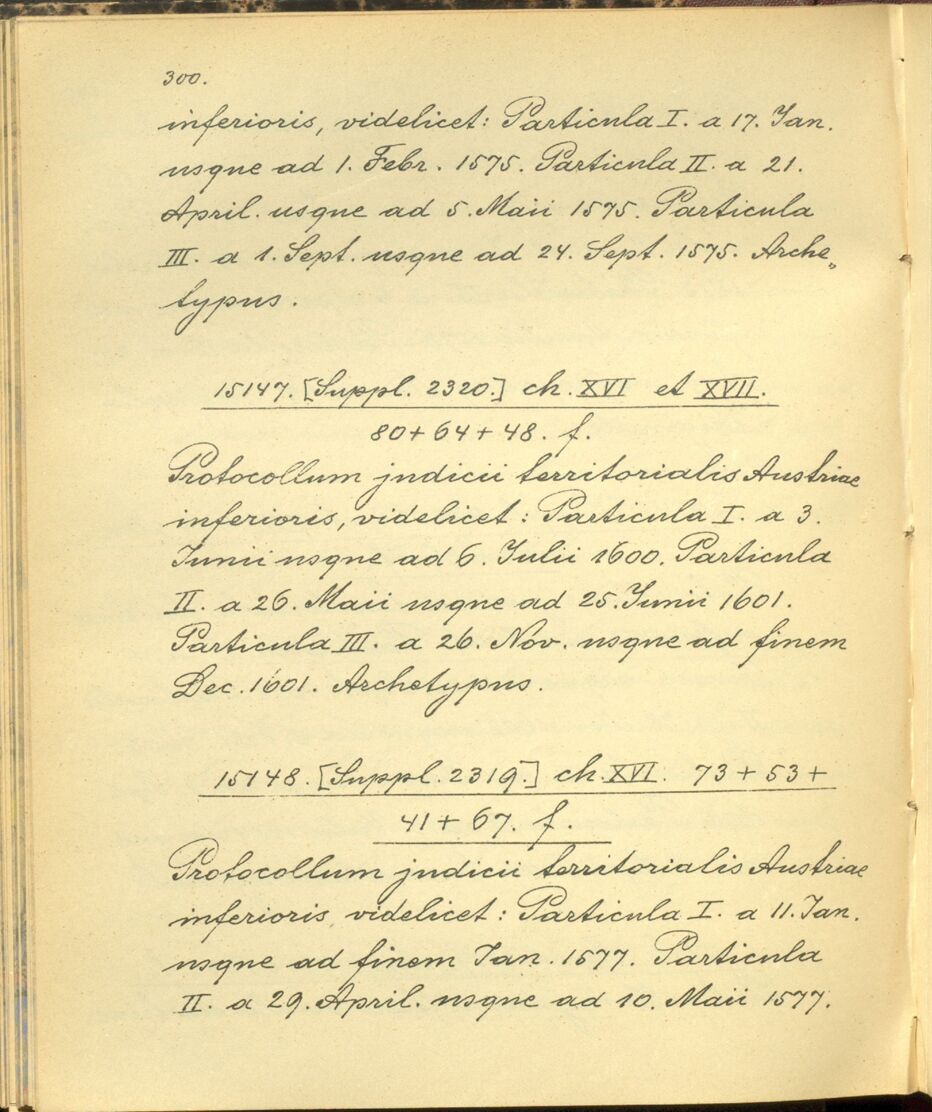 300.
inferioris, videlicet: Particula I. a 17. Jan.
usque ad 1. Febr. 1575. Particula II. a 21.
April. usque ad 5. Maii 1575. Particula
III. a 1. Sept. usque ad 24. Sept. 1575. Arche„
typus.
15147. [Suppl. 2320.] ch. XVI et XVII.
80+64+48. f.
Protocollum judicii territorialis Austriae
inferioris, videlicet: Particula I. a 3.
Junii usque ad 6. Julii 1600. Particula
II. a 26. Maii usque ad 25. Junii 1601.
Particula III. a 26. Nov. usque ad finem
Dec. 1601. Archetypus.
15148. [Suppl. 2319.] ch. XVI. 73+53+
41+67. f.
Protocollum judicii territorialis Austriae
inferioris videlicet: Particula I. a 11. Jan.
usque ad finem Jan. 1577. Particula
II. a 29. April. usque ad 10. Maii 1577.